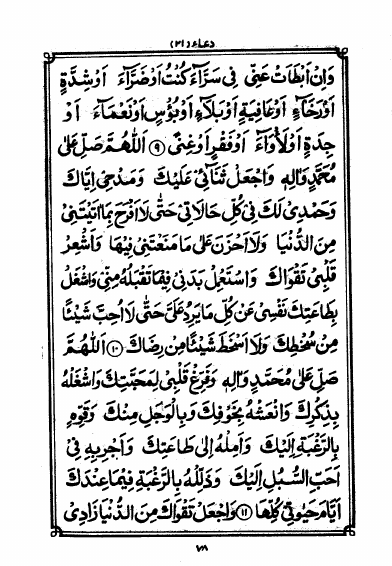 دعاء (۲۱)
وَاِنْ اَبْطَاَتْ عَنِّى فِى سَرَّآءَ كُنْتُ اَوْضَرَّآءَ اَوْشِدَّةٍ
اَوْرَخَآءٍ اَوْعَافِيَةٍ اَوْبَلَآءٍ اَوْبُؤْسٍ اَوْنَعْمَآءَ اَوْ
جِدَةٍ اَوْلَأْوَآءَ اَوْفَقْرٍ اَوْغِنًى ۹ اَللّٰهُمَّ صَلِّ عَلٰى
مُحَمَّدٍ وَاٰلِهٖ وَاجْعَلْ ثَنَآئِىْ عَلَيْكَ وَمَدْحِىْ اِيَّاكَ
وَحَمْدِىْ لَكَ فِىْ كُلِّ حَالَاتِىْ حَتّٰى لَا اَفْرَحَ بِمَا اٰتَيْتَنِىْ
مِنَ الدُّنْيَا وَلَا اَحْزَنَ عَلٰى مَا مَنَعْتَنِىْ فِيْهَا وَاَشْعِرْ
قَلْبِىْ تَقْوَاكَ وَاسْتَعْمِلْ بَدَنِىْ فِيْمَا تَقْبَلُهُ مِنِّىْ وَاشْغَلْ
بِطَاعَتِكَ نَفْسِىْ عَنْ كُلِّ مَا يَرِدُ عَلَىَّ حَتّٰى لَا اُحِبَّ شَيْئًا
مِنْ سُخْطِكَ وَلَا اَسْخَطَ شَيْئًا مِنْ رِضَاكَ ۱۰ اَللّٰهُمَّ
صَلِّ عَلٰى مُحَمَّدٍ وَاٰلِهٖ وَفَرِّغْ قَلْبِىْ لِمَحَبَّتِكَ وَاشْغَلْهُ
بِذِكْرِكَ وَانْعَشْهُ بِخَوْفِكَ وَبِالْوَجَلِ مِنْكَ وَقَوِّهِ
بِالرَّغْبَةِ اِلَيْكَ وَاَمِلْهُ اِلٰى طَاعَتِكَ وَاَجْرِ بِهِ فِىْ
اَحَبِّ السُّبُلِ اِلَيْكَ وَذَلِّلْهُ بِالرَّغْبَةِ فِيْمَا عِنْدَكَ
اَيَّامَ حَيٰوتِىْ كُلِّهَا ۱۱ وَاجْعَلْ تَقْوَاكَ مِنَ الدُّنْيَا زَادِىْ
۷۸